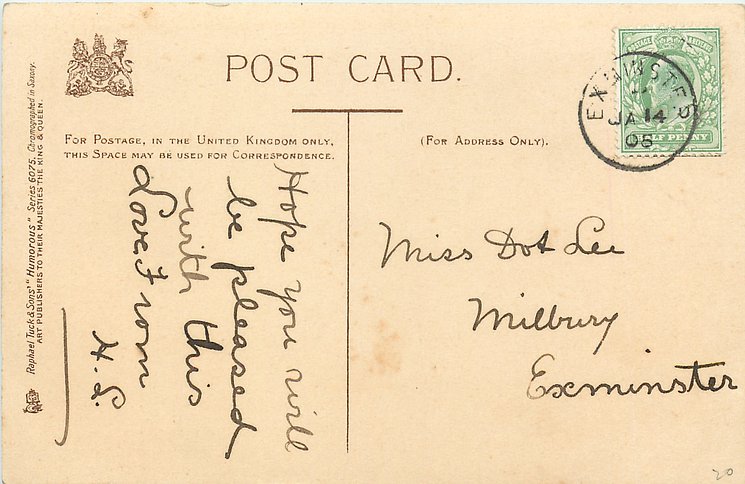 POST CARD.
FOR POSTAGE, IN THE UNITED KINGDOM ONLY,
THIS SPACE MAY BE USED FOR CORRESPONDENCE.
(FOR ADDRESS ONLY).
Raphael Tuck & Sons' "Humorous" Series 6075. Chromographed in Saxony.
ART PUBLISHERS TO THEIR MAJESTIES THE KING & QUEEN.
Hope you will
be pleased
with this
Love From
Miss Dot Lee
Milbury
Exminster
JA 14
HALF PENNY
20